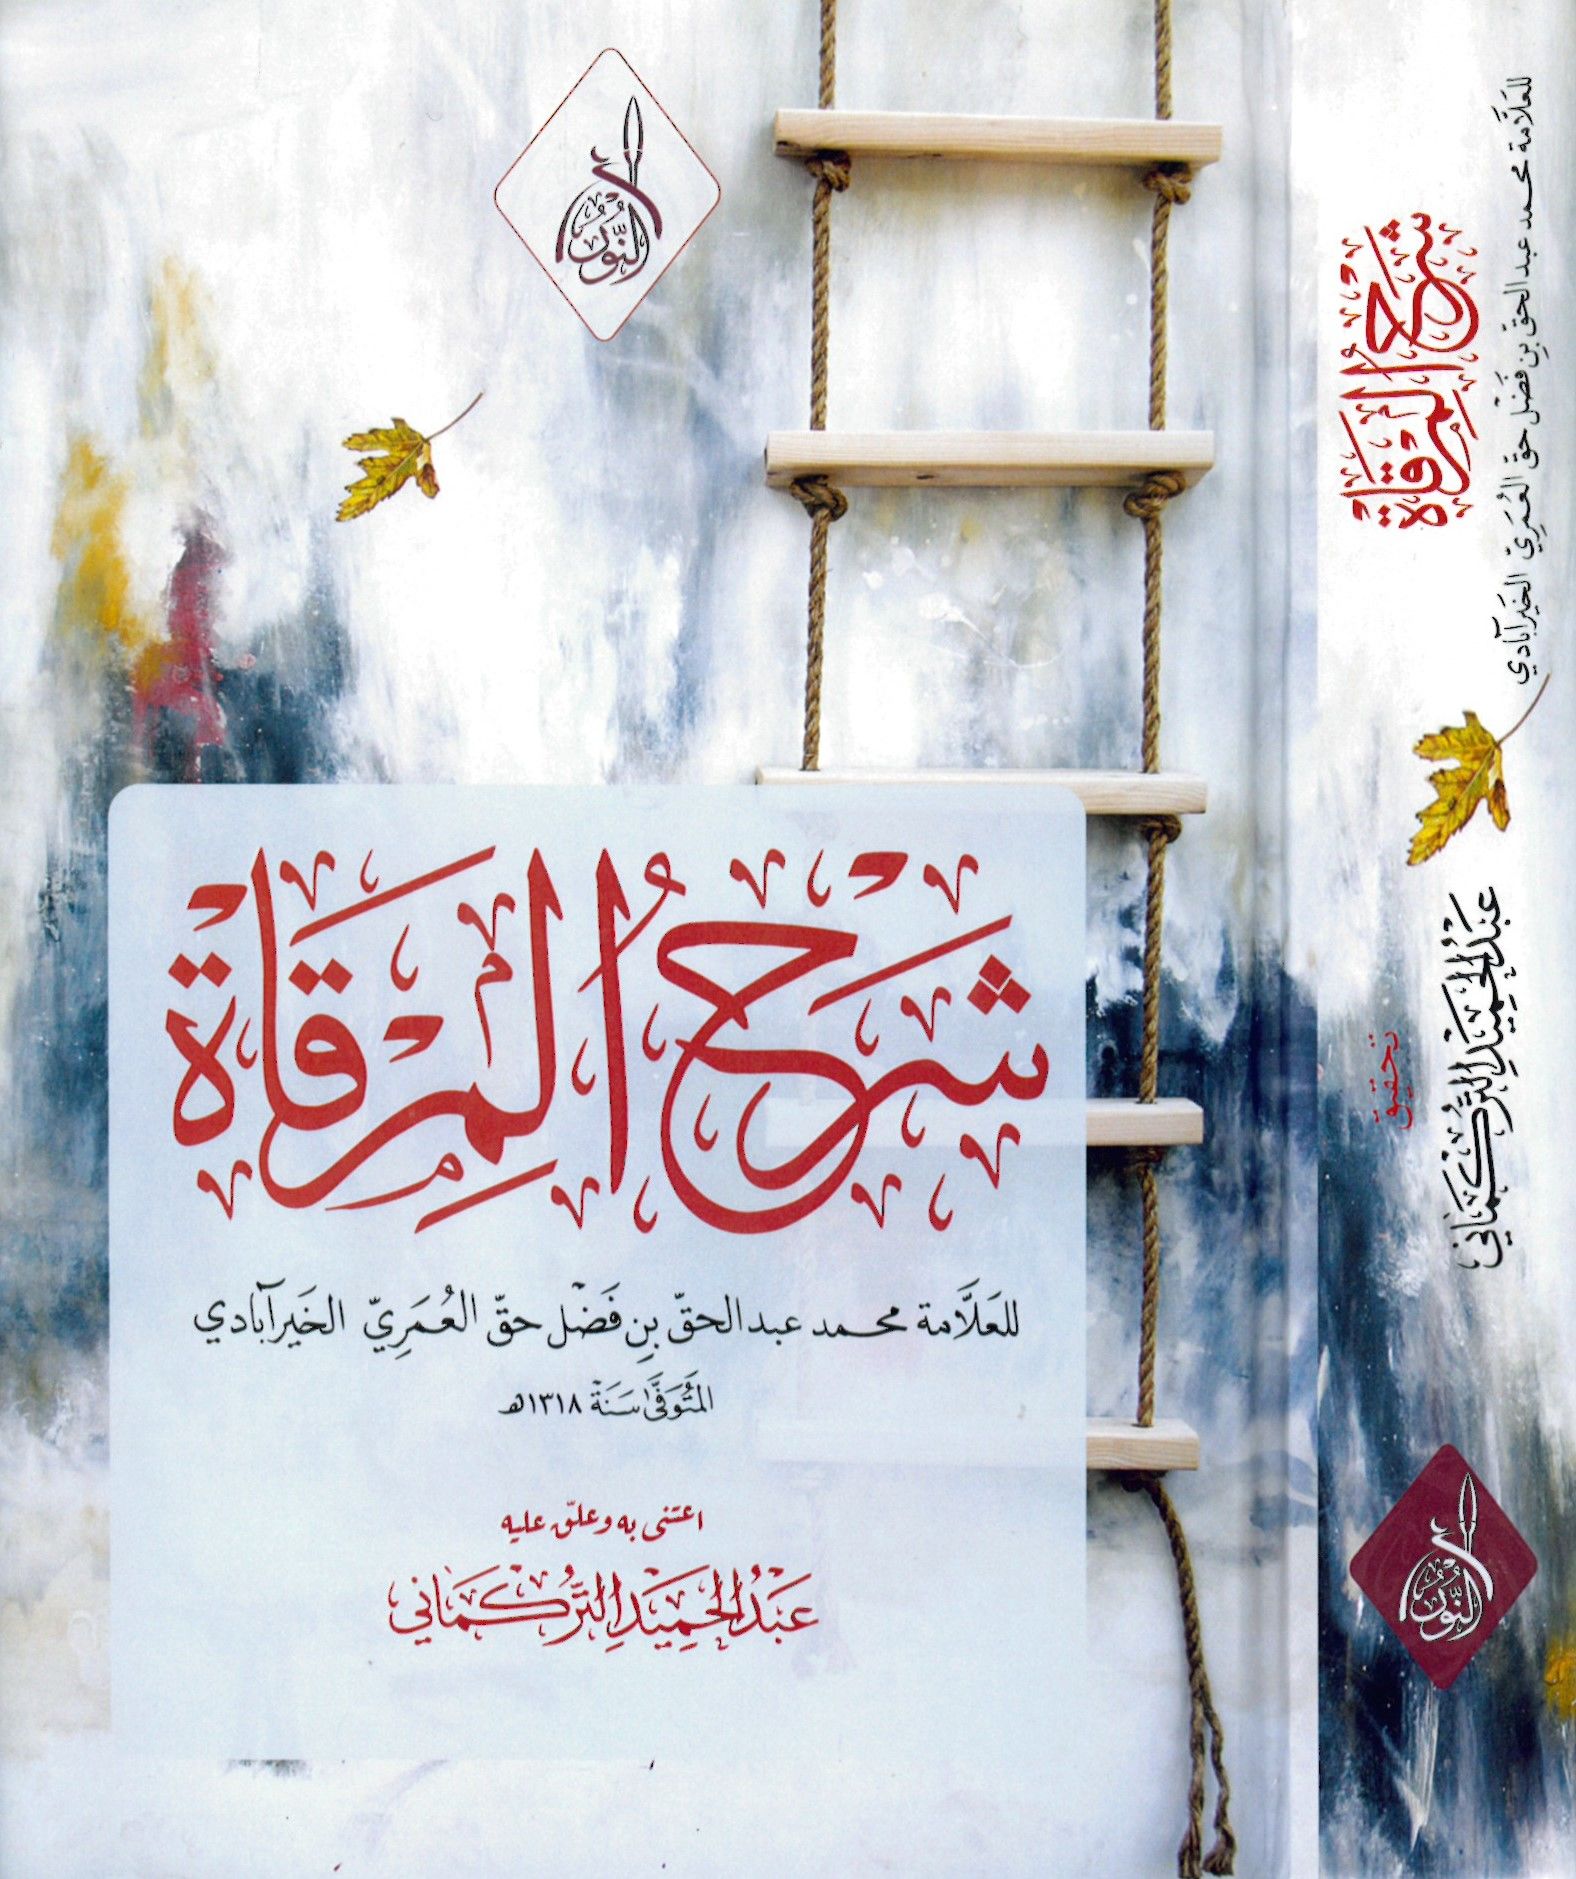 النور
شَرْحُ المِرْقَاة
للعَلَّامة محمد عبد الحقّ بنِ فَضْل حقّ العُمَرِيّ الخَيرآبادي
المُتَوَفَّى سَنَة ١٣١٨هـ
اعتنى به وعلّق عليه
عَبْدُ الحَمِيْدِ التُّرْكْمَاني
للعَلَّامة محمد عبد الحقّ بنِ فَضْل حقّ العُمَرِيّ الخَيرآبادي
شَرْحُ المِرْقَاة
تحقيق
عَبْدُ الحَمِيْدِ التُّرْكْمَاني
النور